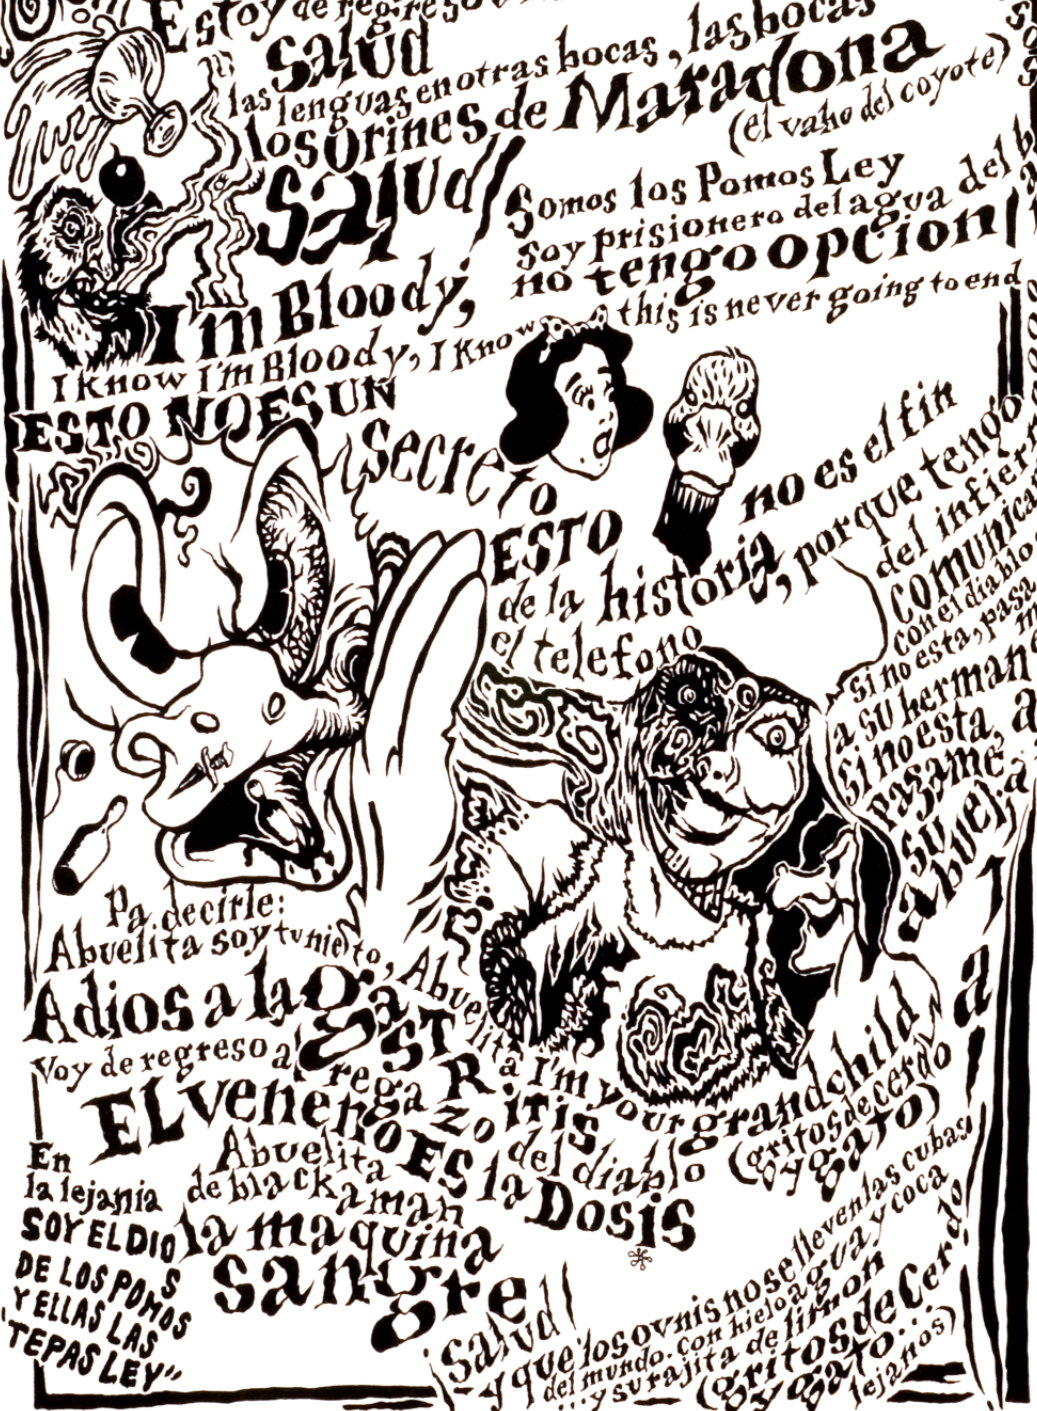 Estoy de regreso
salud
las lenguas en otras bocas, las bocas
los orines de Maradona
(el vaho del coyote)
salud/
Somos los Pomos Ley
soy prisionero del agua del
no tengo opcion/
I'm Bloody,
I know I'm Bloody, I know this is never going to end
ESTO NO ES UN
secreto
ESTO no es el fin
de la historia, porque tengo
el telefono
del infierno
comunica
con el diablo
si no esta, pasa
a su herman
si no esta, a
pasame a
su
abuela
Pa. decirle:
Abuelita soy tu nieto, Abuelita I'm your grandchild
Adios a la gastritis
(gritos de cerdo
y gato)
Voy de regreso al regazo del diablo
EL veneno ES la Dosis
Abuelita
de blackaman
la maquina
sangre
En
la lejania
SOY EL DIOS
DE LOS POMOS
Y ELLAS LAS
"TEPAS LEY"
Salud/
y que los ovnis no se lleven las cubas
del mundo. con hielo agua y coca
... y su rajita de limon
(gritos de Cerdo
y gato...
lejanos)